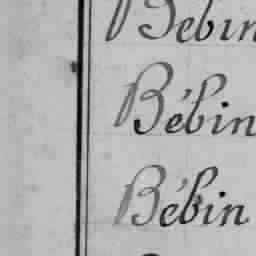 Bebin
Bébin
Bébin